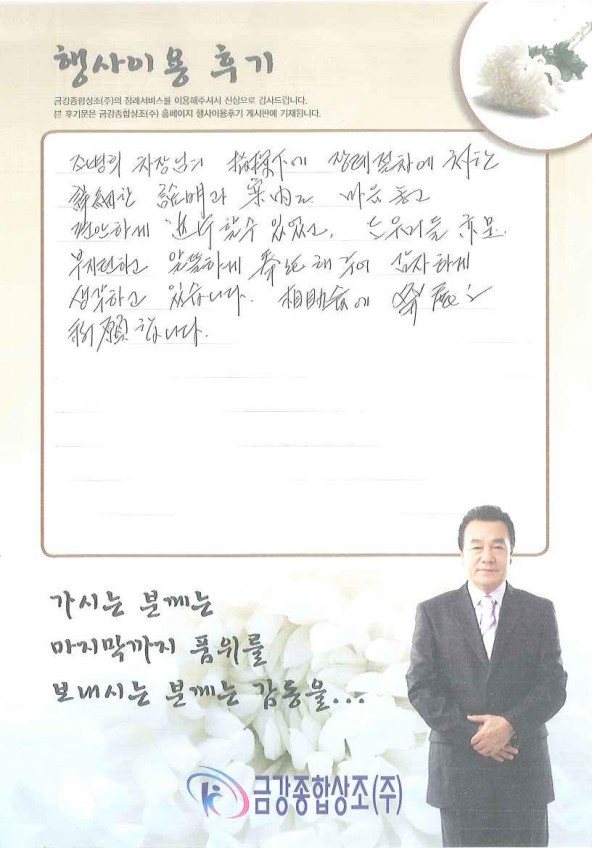 행사이용 후기
금강종합상조(주)의 장례서비스를 이용해주셔서 진심으로 감사드립니다.
본 후기문은 금강종합상조(주) 홈페이지 행사이용후기 게시판에 기재됩니다.
차장님의 에 장례절차에 처한
詳細한 說明과 案内로 마음 놓고
편안하게 할 수 있었고, 도우미들 亦是
부지런하고 알뜰하게 奉仕해 주어 감사하게
생각하고 있습니다. 相助会에 發展을
祈願합니다.
가시는 분께는
마지막까지 품위를
보내시는 분께는 감동을...
금강종합상조(주)